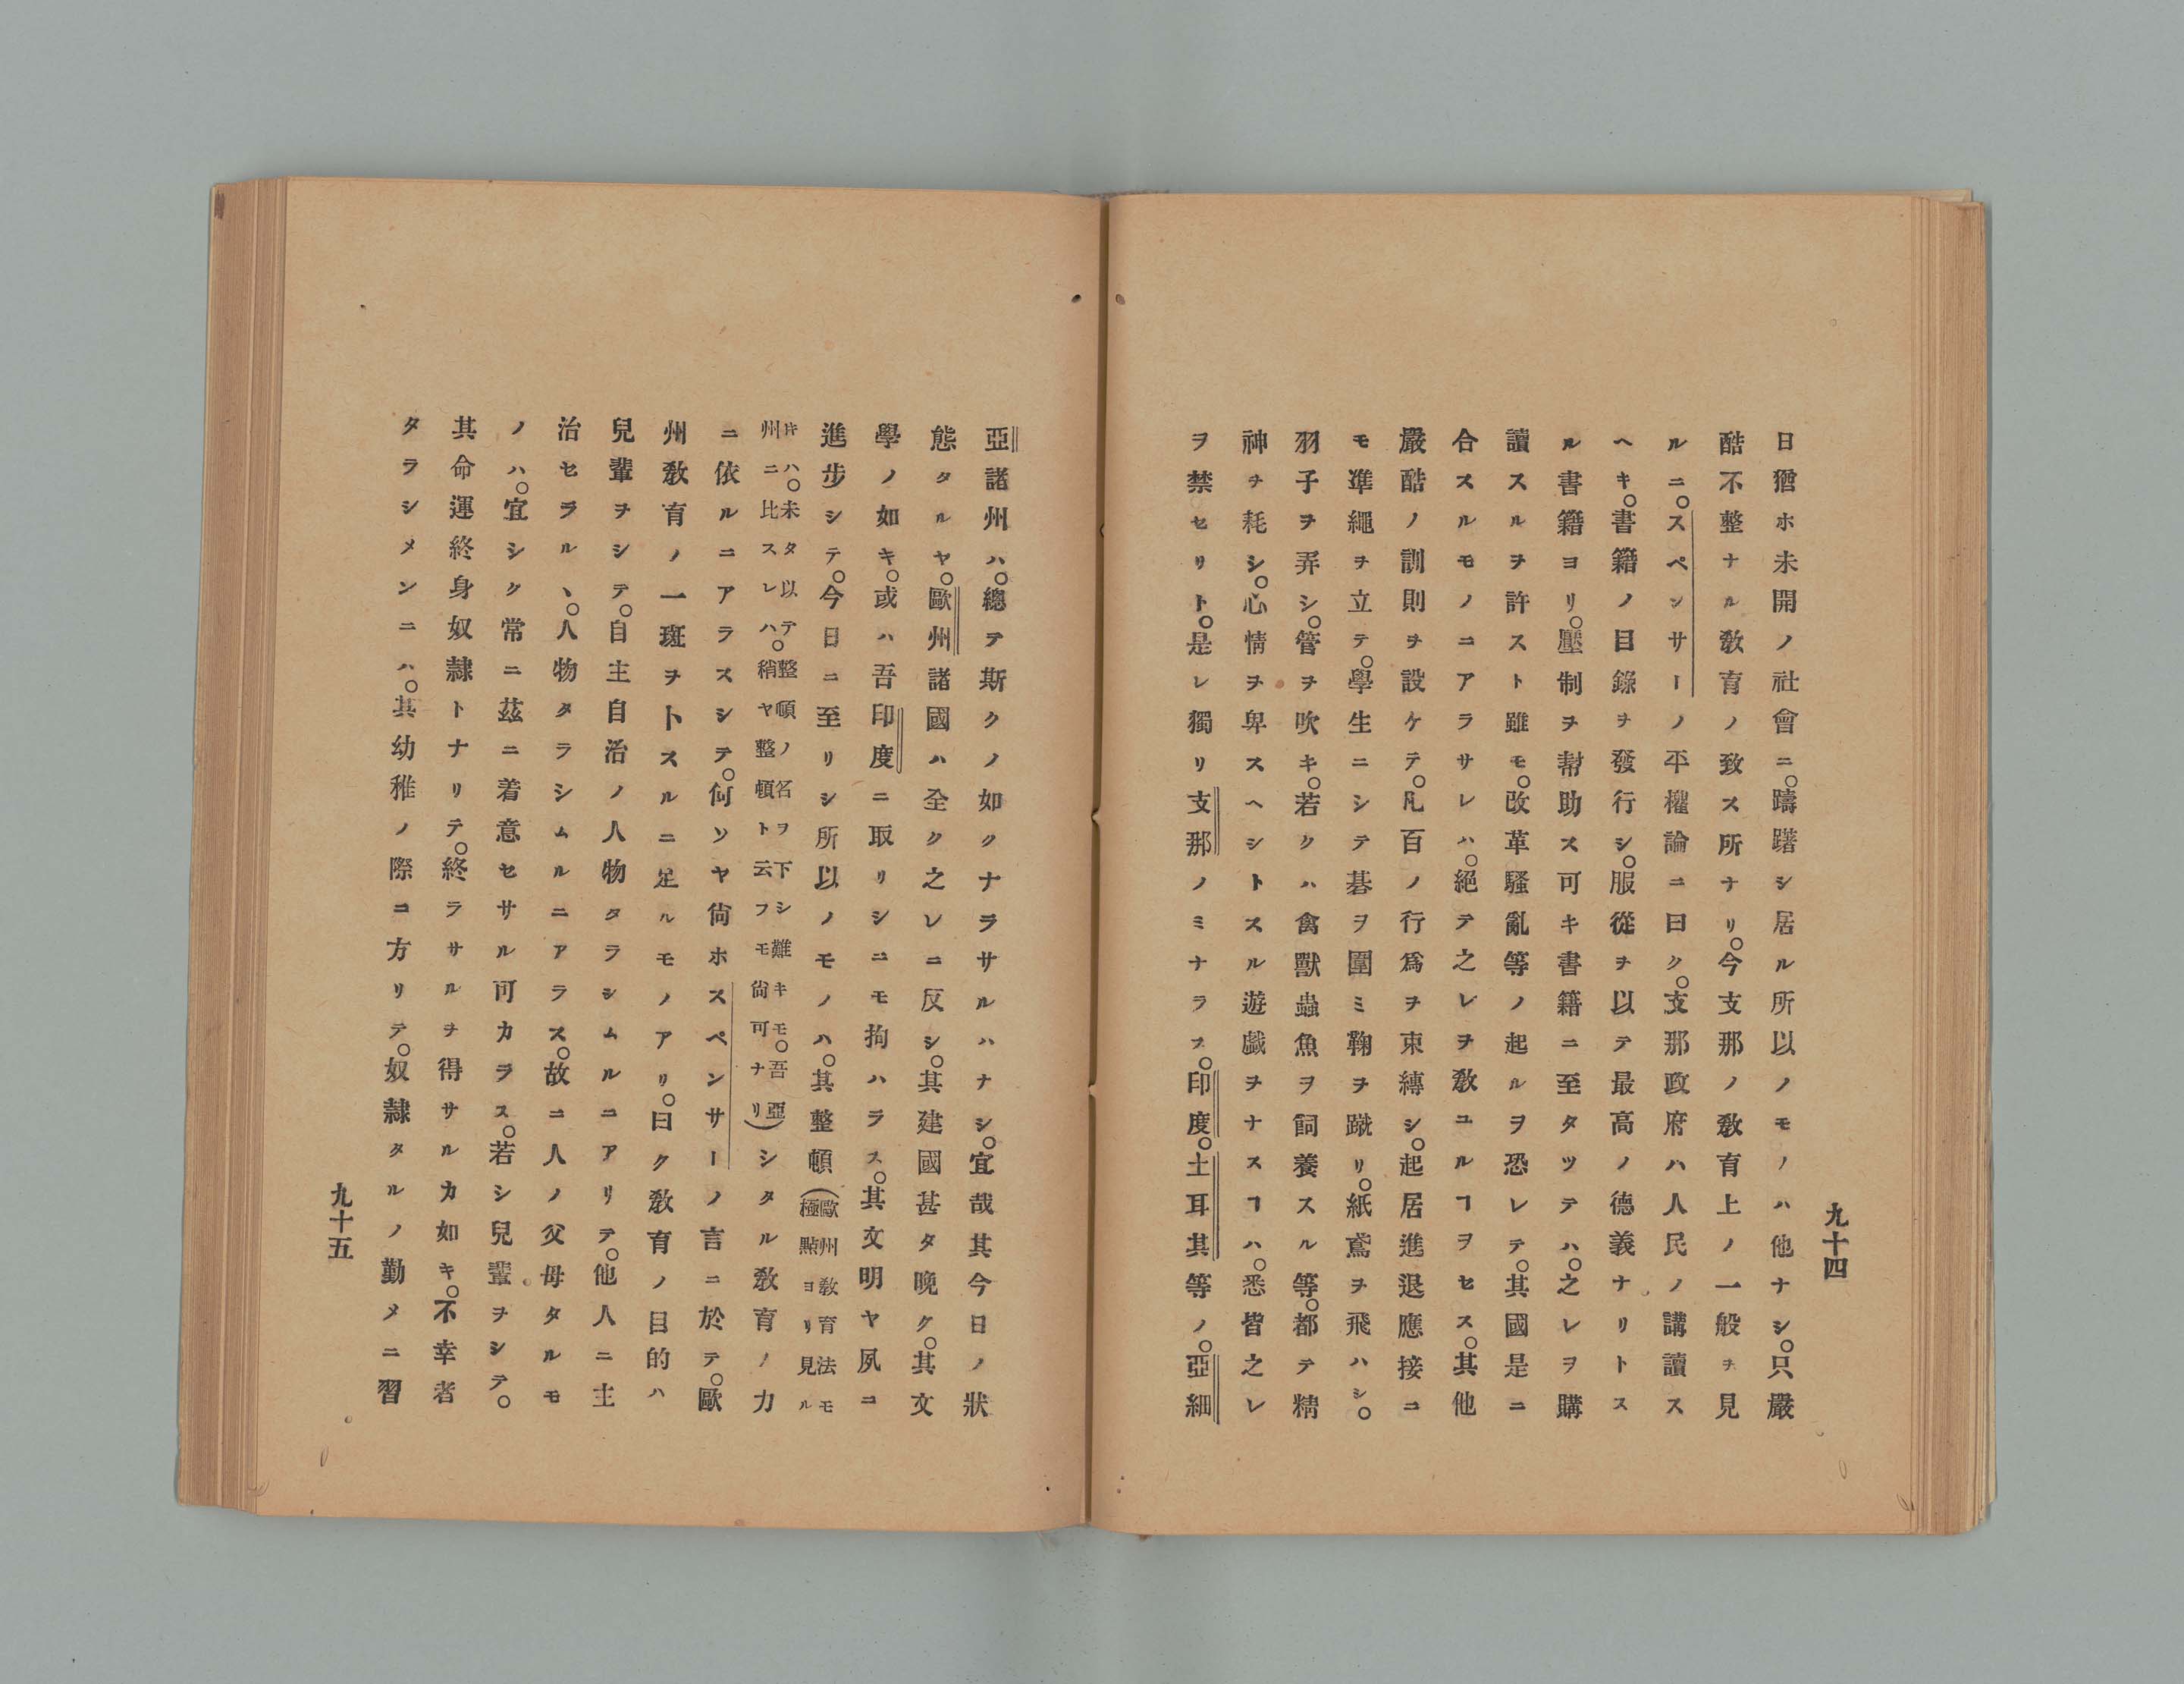 九十四
日猶ホ未開ノ社會ニ。躊躇シ居ル所以ノモノハ他ナシ。只嚴
酷不整ナル敎育ノ致ス所ナリ。今支那ノ敎育上ノ一般ヲ見
ルニ。スペンサーノ平權論ニ曰ク。支那政府ハ人民ノ講讀ス
ヘキ。書籍ノ目錄ヲ發行シ。服從ヲ以テ最高ノ德義ナリトス
ル書籍ヨリ。壓制ヲ幇助ス可キ書籍ニ至タツテハ。之レヲ購
讀スルヲ許スト雖モ。改革騷亂等ノ起ルヲ恐レテ。其國是ニ
合スルモノニアラサレハ。絕テ之レヲ敎ユルヿヲセス。其他
嚴酷ノ訓則ヲ設ケテ。凡百ノ行爲ヲ束縛シ。起居進退應接ニ
モ準繩ヲ立テ。學生ニシテ碁ヲ圍ミ鞠ヲ蹴リ。紙鳶ヲ飛ハシ。
羽子ヲ弄シ。管ヲ吹キ。若クハ禽獸蟲魚ヲ飼養スル等。都テ精
神ヲ耗シ。心情ヲ卑スヘシトスル遊戲ヲナスヿハ。悉皆之レ
ヲ禁セリト。是レ獨リ支那ノミナラス。印度。土耳其等ノ。亞細
亞諸州ハ。總テ斯クノ如クナラサルハナシ。宜哉其今日ノ狀
態タルヤ。歐州諸國ハ全ク之レニ反シ。其建國甚タ晚ク。其文
學ノ如キ。或ハ吾印度ニ取リシニモ拘ハラス。其文明ヤ夙ニ
進步シテ。今日ニ至リシ所以ノモノハ。其整頓(歐州敎育法モ極點ヨリ見ル
片ハ。未タ以テ整頓ノ名ヲ下シ難キモ。吾亞州ニ比スレハ。稍ヤ整頓ト云フモ尙可ナリ)シタル敎育ノ力
ニ依ルニアラスシテ。何ソヤ尙ホスペンサーノ言ニ於テ。歐
州敎育ノ一斑ヲトスルニ足ルモノアリ。曰ク敎育ノ目的ハ
兒輩ヲシテ。自主自治ノ人物タラシムルニアリテ。他人ニ主
治セラルヽ。人物タラシムルニアラス。故ニ人ノ父母タルモ
ノハ。宜シク常ニ茲ニ着意セサル可カラス。若シ兒輩ヲシテ。
其命運終身奴隸トナリテ。終ラサルヲ得サルカ如キ。不幸者
タラシメンニハ。其幼稚ノ際コ方リテ。奴隸タルノ勤メニ習
九十五